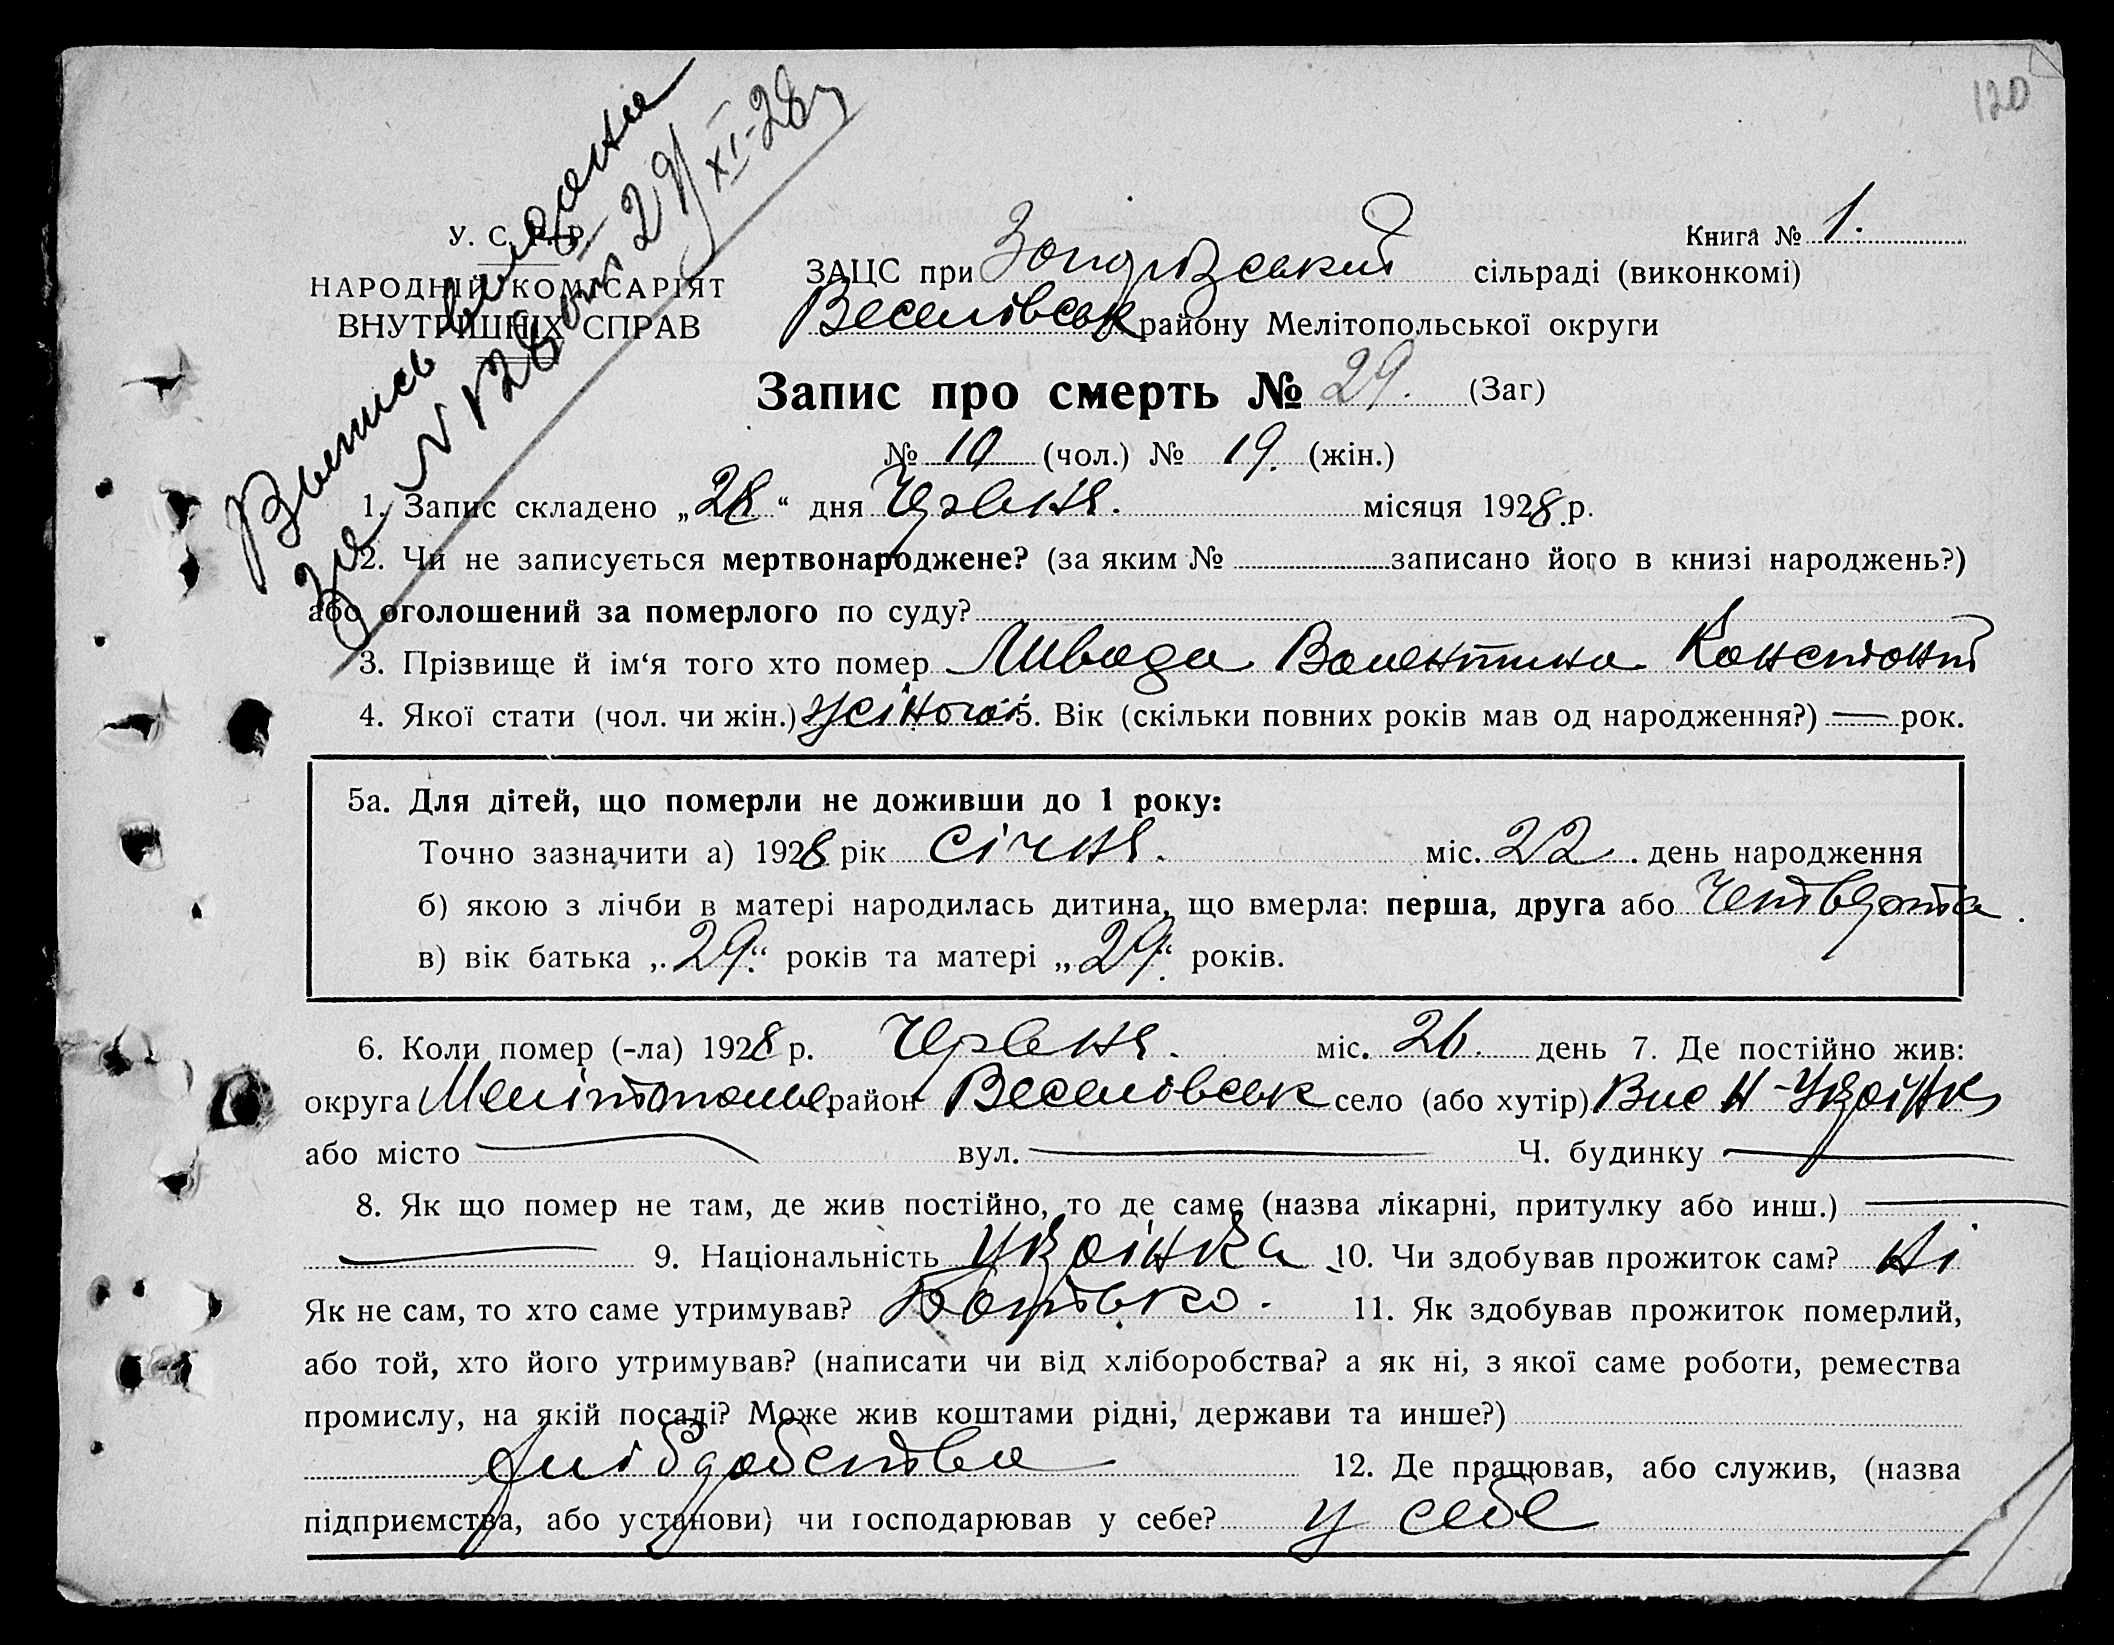 120
Выпись выслана
за № 1280 от 29/XI-28 г
У. С. Р. Р.
НАРОДНІЙ КОМІСАРІЯТ
ВНУТРІШНІХ СПРАВ
Книга № 1.
ЗАЦС при сільраді (виконкомі)
Веселівськ району Мелітопольської округи
Запис про смерть № 29. (Заг)
№ 10 (чол.) № 19. (жін.)
1. Запис складено „28“ дня Червня. місяця 1928 р.
2. Чи не записується мертвонароджене? (за яким № записано його в книзі народжень?)
або оголошений за померлого по суду?
3. Прізвище й ім‘я того хто помер Ливада Валентина Констант
4. Якої стати (чол. чи жін.) жіночої 5. Вік (скільки повних років мав од народження?) — рок.
5а. Для дітей, що померли не доживши до 1 року:
Точно зазначити а) 1928 рік Січня. міс. 22. день народження
б) якою з лічби в матері народилась дитина, що вмерла: перша, друга або Четверта.
в) вік батька „29“ років та матері „29“ років.
6. Коли помер (-ла) 1928 р. Червня. міс. 26. день 7. Де постійно жив:
округа Мелітопольс район Веселівськ село (або хутір) Вис Н-Украінка
або місто — вул. — Ч. будинку —
8. Як що помер не там, де жив постійно, то де саме (назва лікарні, притулку або инш.) —
— 9. Національність Украінка 10. Чи здобував прожиток сам? Ні
Як не сам, то хто саме утримував? Батько. 11. Як здобував прожиток померлий,
або той, хто його утримував? (написати чи від хліборобства? а як ні, з якої саме роботи, ремества
промислу, на якій посаді? Може жив коштами рідні, держави та инше?)
хліборобства 12. Де працював, або служив, (назва
підприємства, або установи) чи господарював у себе? у себе